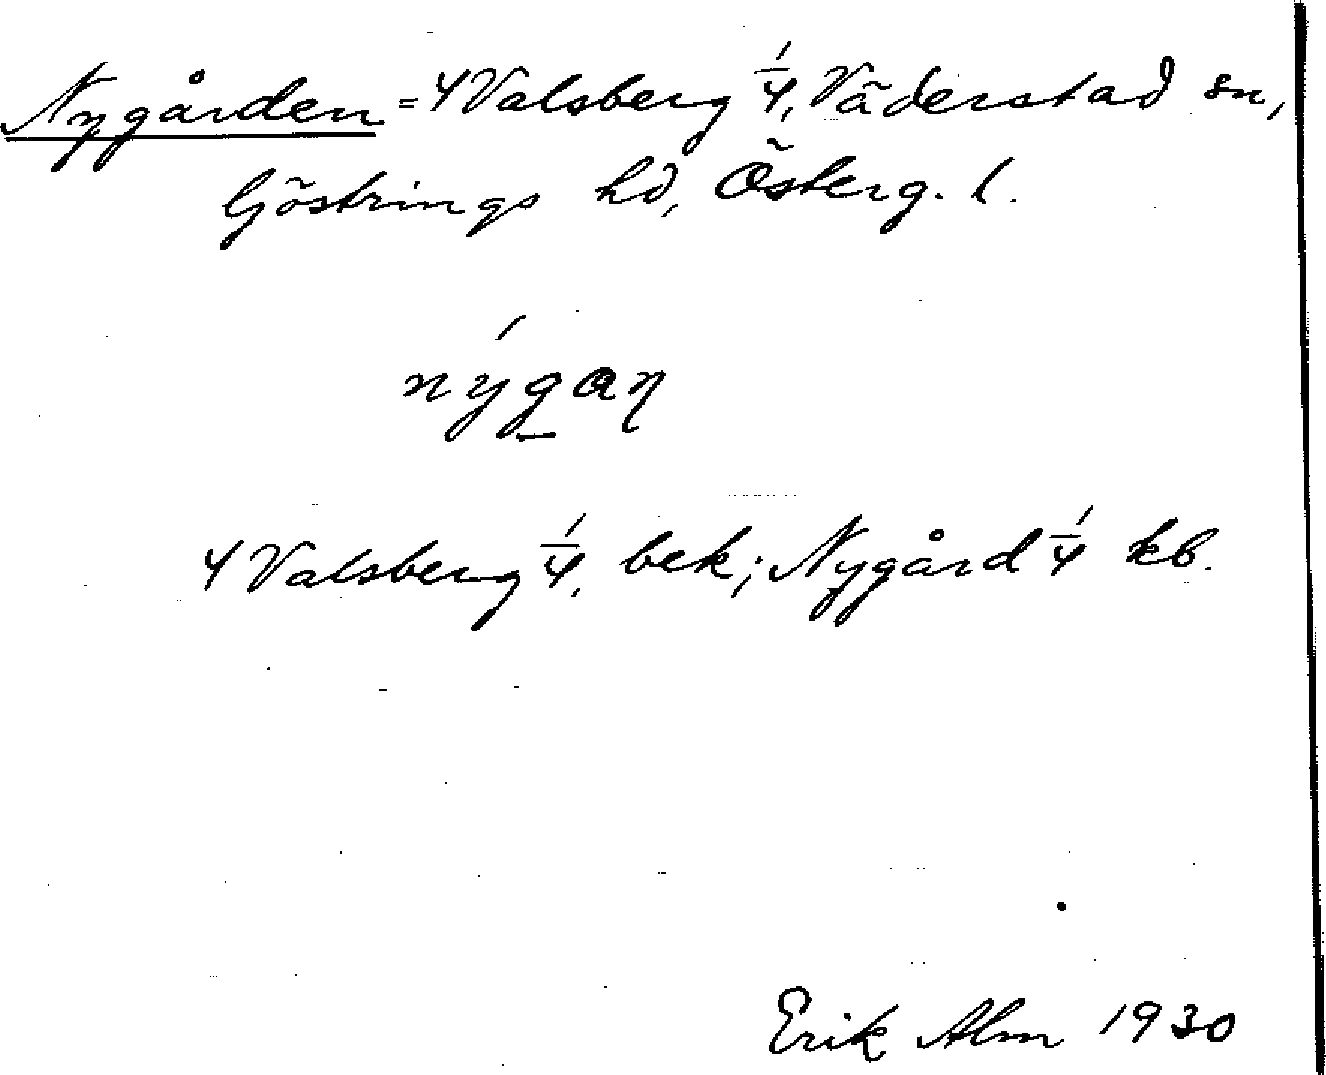 Nygården = 4 Valsberg 1/4, Väderstad sn,
Göstrings hd, Österg. l.
nýgaɳ
4 Valsberg 1/4, bek; Nygård 1/4 kb.
Erik Alm 1930